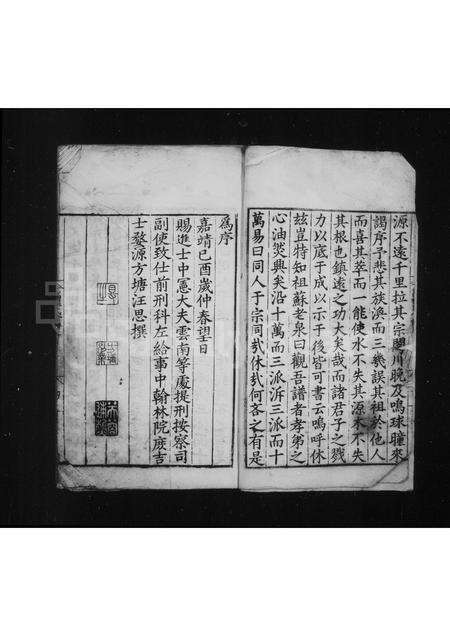 源不遠千里拉其宗閩川晚及鳴珠瞳來
謁序予悲其族渙而三幾誤其祖於他人
而喜其萃而一能使水不失其源木不失
其根也鎮遠之功大矣哉而諸君子之戮
力以底于成以示于後皆可書云嗚呼休
玆豈特知祖蘇老泉曰觀吾譜者孝弟之
心油然興矣沿十萬而三派泝三派而十
萬易曰同人于宗同弌休弌何咎之有是
為序
嘉靖己酉歲仲春望日
賜進士中憲大夫雲南等處提刑按察司
副使致仕前刑科左給事中翰林院庶吉
士婺源方塘汪思撰